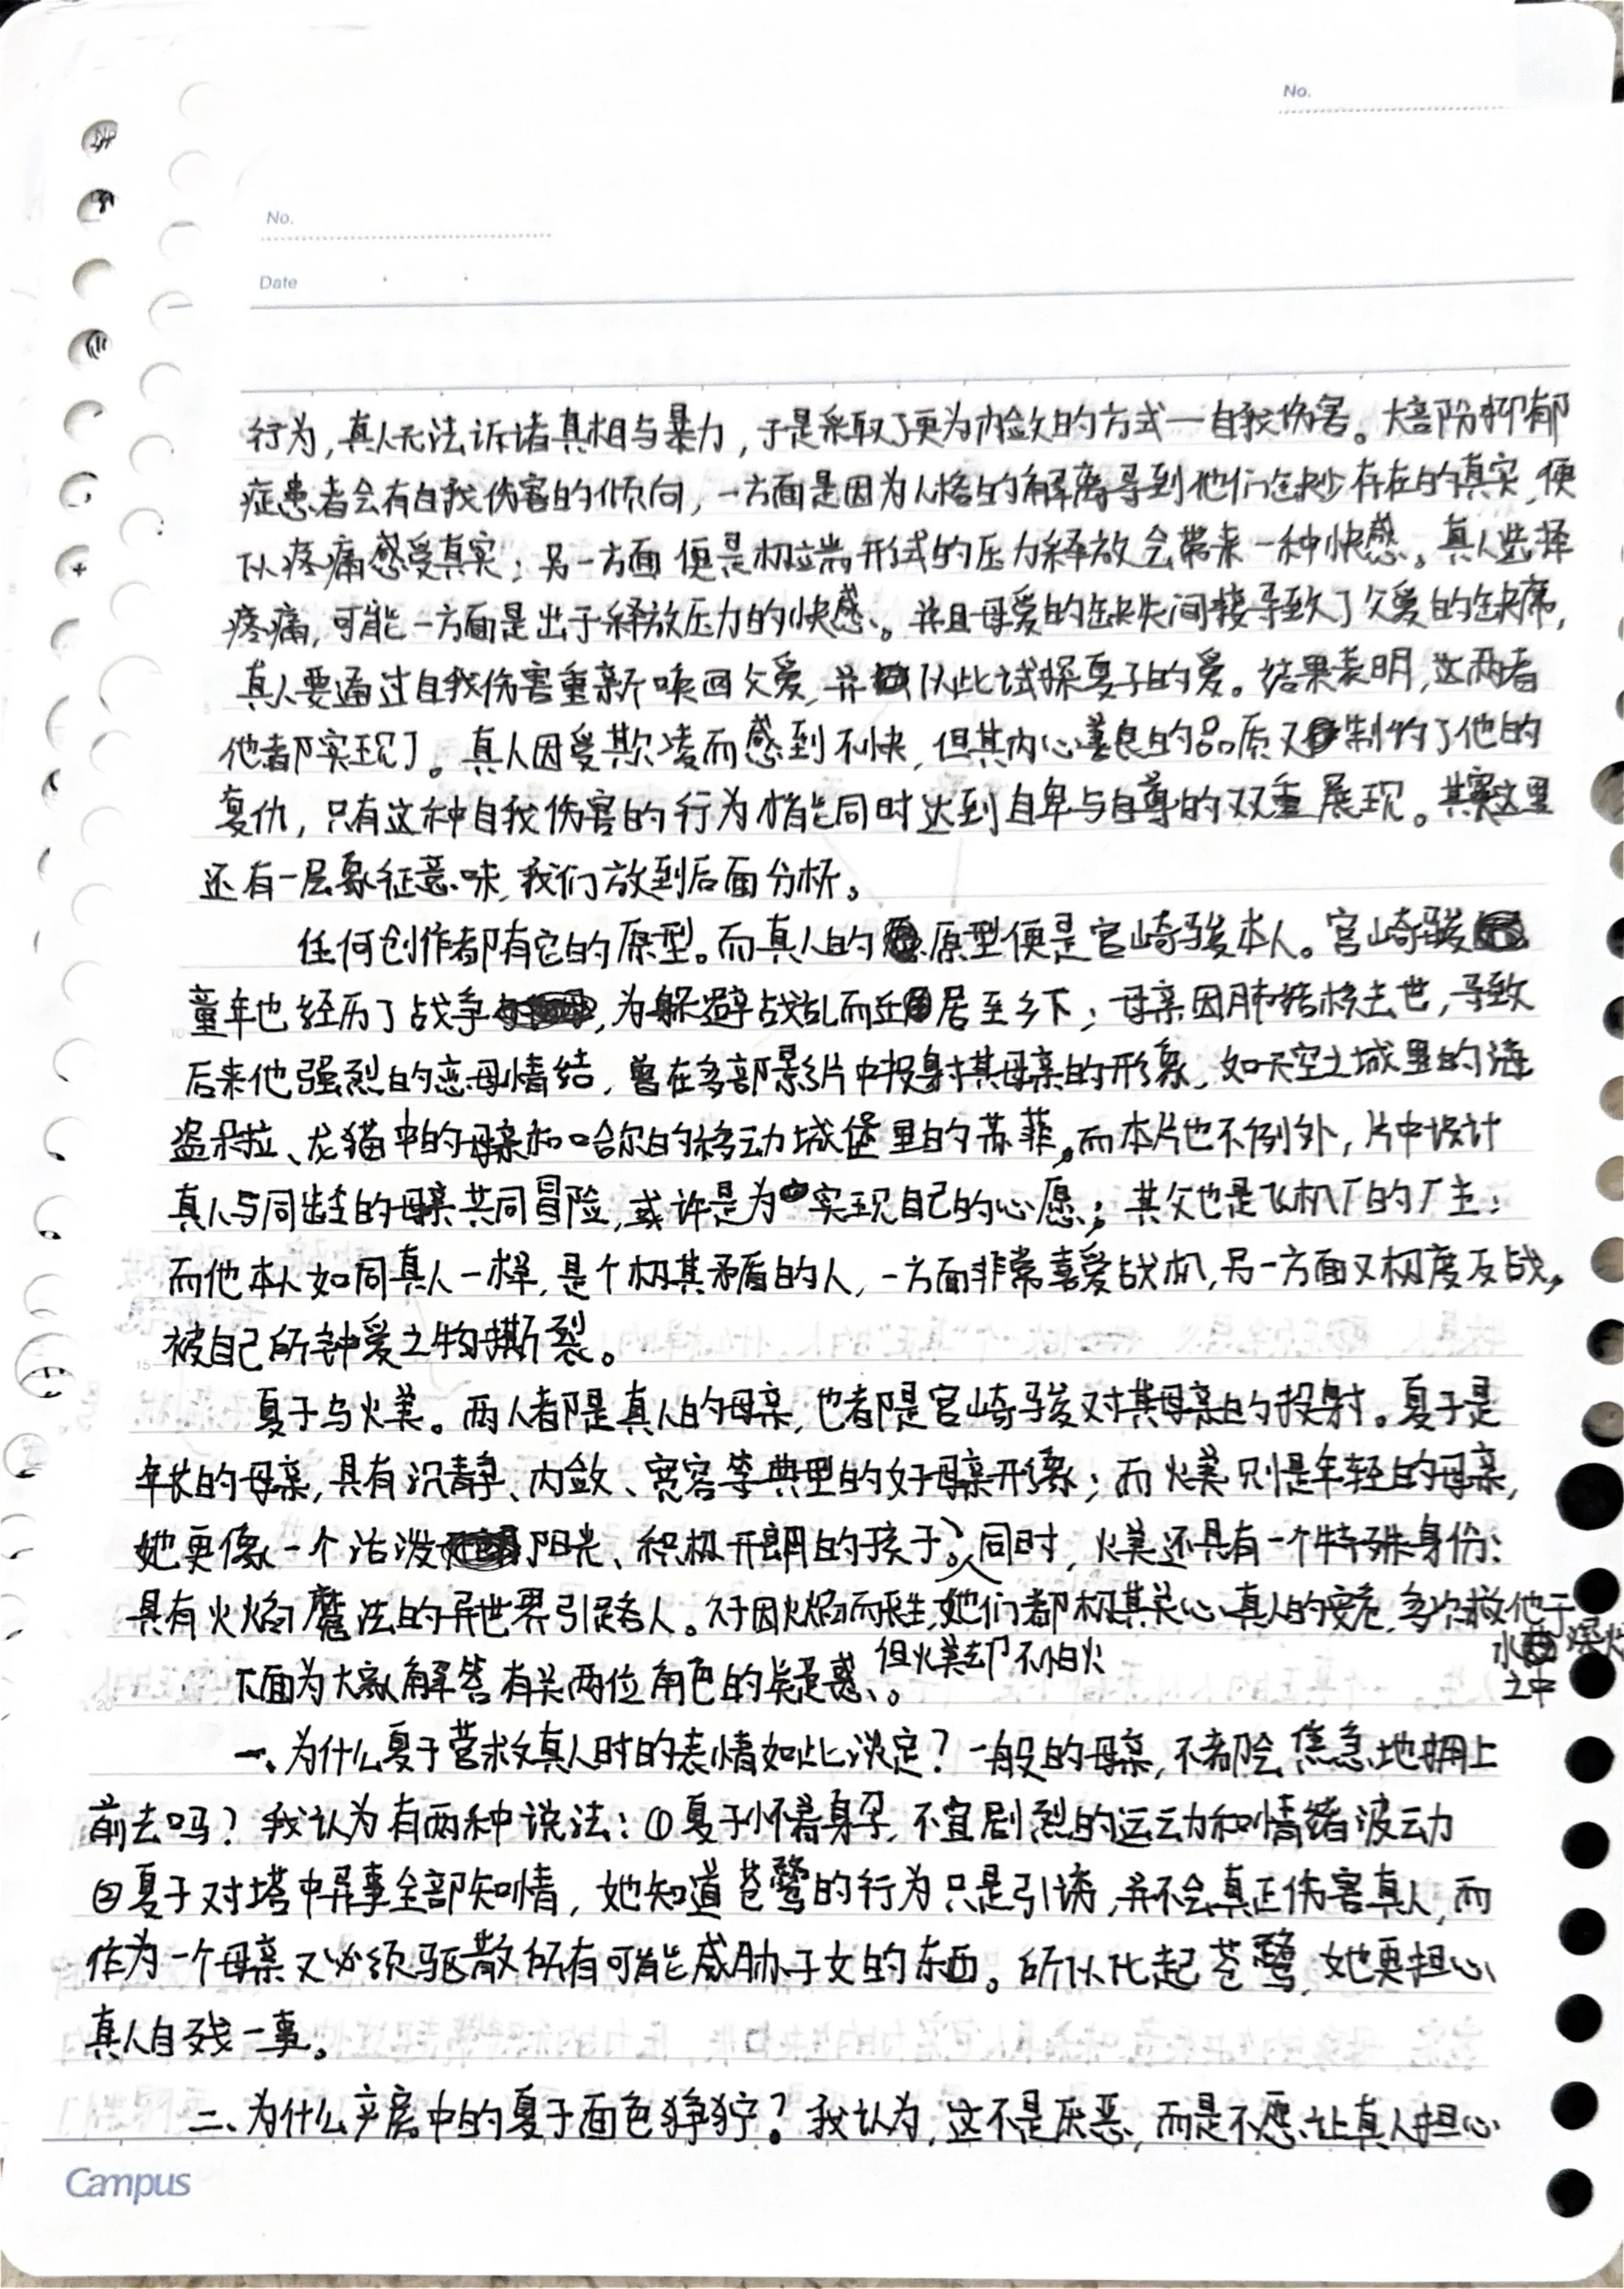 No.
No.
Date
行为，真人无法诉诸真相与暴力，于是采取了更为内敛的方式—自我伤害。大部分抑郁
症患者会有自我伤害的倾向，一方面是因为人格的解离导到他们缺少存在的真实，便
以疼痛感受真实；另一方面便是极端形式的压力释放会带来一种快感。真人选择
疼痛，可能一方面是出于释放压力的快感。并且母爱的缺失间接导致了父爱的缺席，
真人要通过自我伤害重新唤回父爱，并以此试探夏子的爱。结果表明，这两者
他都实现了。真人因受欺凌而感到不快，但其内心善良的品质又制约了他的
复仇，只有这种自我伤害的行为才能同时达到自卑与自尊的双重展现。其实这里
还有一层象征意味，我们放到后面分析。
任何创作都有它的原型。而真人的原型便是宫崎骏本人。宫崎骏
童年也经历了战争，为躲避战乱而迁居至乡下；母亲因肺结核去世，导致
后来他强烈的恋母情结，曾在多部影片中投射其母亲的形象，如天空之城里的海
盗朵拉、龙猫中的母亲和哈尔的移动城堡里的苏菲。而本片也不例外，片中设计
真人与同龄的母亲共同冒险，或许是为实现自己的心愿；其父也是飞机厂的厂主；
而他本人如同真人一样，是个极其矛盾的人，一方面非常喜爱战机，另一方面又极度反战，
被自己所钟爱之物撕裂。
夏子与火美。两人都是真人的母亲，也都是宫崎骏对其母亲的投射。夏子是
年长的母亲，具有沉静、内敛、宽容等典型的好母亲形象；而火美则是年轻的母亲，
她更像一个活泼阳光、积极开朗的孩子。同时，火美还具有一个特殊身份：
具有火焰魔法的异世界引路人。久子因火焰而死，她们都极其关心真人的安危，多次救他于
水深火
之中
但火美却不怕火
下面为大家解答有关两位角色的疑惑。
一、为什么夏子营救真人时的表情如此淡定？一般的母亲，不都会焦急地拥上
前去吗？我认为有两种说法：①夏子怀着身孕，不宜剧烈的运动和情绪波动
②夏子对塔中异事全部知情，她知道苍鹭的行为只是引诱，并不会真正伤害真人，而
作为一个母亲又必须驱散所有可能威胁子女的东西。所以比起苍鹭，她更担心
真人自残一事。
二、为什么产房中的夏子面色狰狞？我认为，这不是厌恶，而是不愿让真人担心
Campus